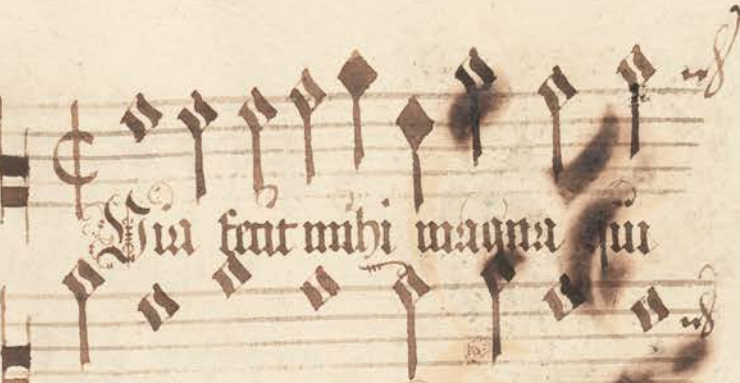 Quia fecit mihi magna qui